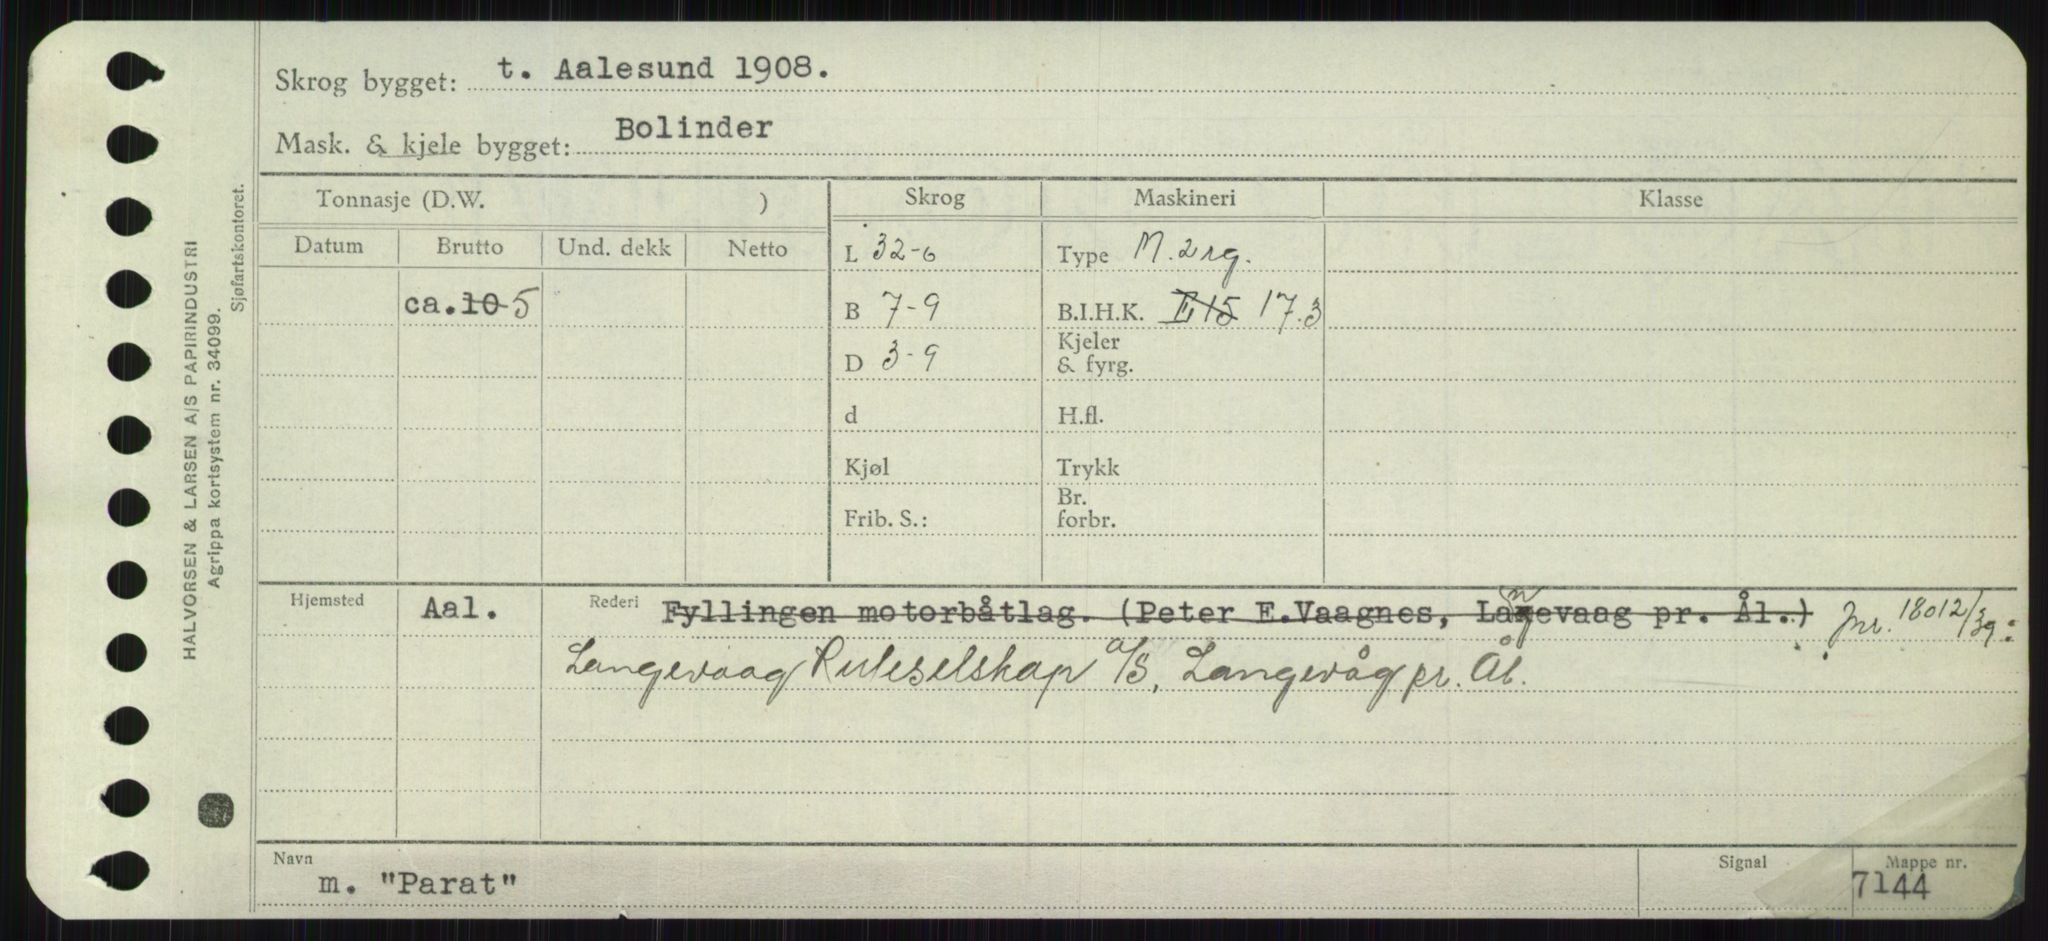 Skrog bygget: t. Aalesund 1908.
Mask. & kjele bygget: Bolinder
Tonnasje (D.W. ) Skrog Maskineri Klasse
Datum Brutto Und. dekk Netto
L 32-6 Type M. 2 rg.
ca. 10 5 B 7-9 B.I.H.K. E 15 17.3
D 3-9 Kjeler & fyrg.
d H.fl.
Kjøl Trykk
Frib. S.: Br. forbr.
Hjemsted Aal. Rederi Fyllingen motorbåtlag. (Peter E.Vaagnes, Langevaag pr. Ål.) Jnr. 18012/39:
Langevaag Ruteselskap a/s, Langevåg pr. Ål.
Navn Signal Mappe nr.
m. "Parat" 7144
HALVORSEN & LARSEN A/S PAPIRINDUSTRI
Agrippa kortsystem nr. 34099.
Sjøfartskontoret.